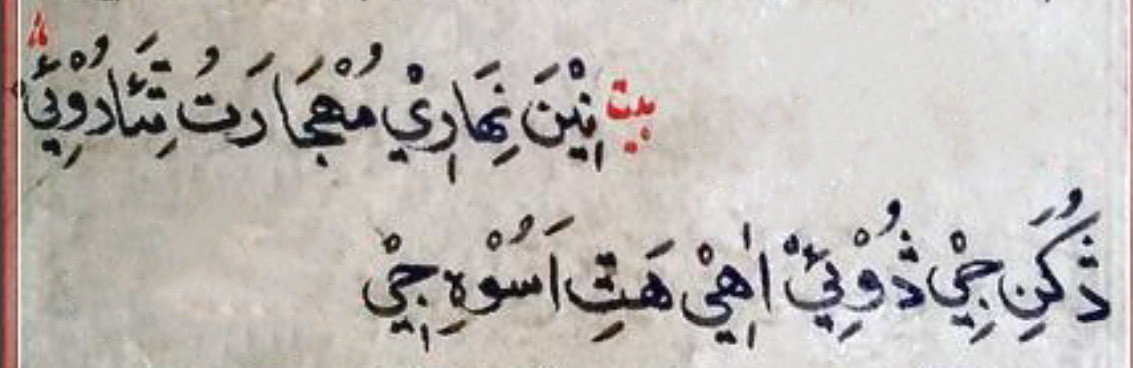 بيت نِيْنَ نِهَارِيْ مُهْجَا رَتُ تِئَا رُوْئِيْ
ڎُکَنِ جِيْ ڎُوْئِيْ اٰهِيْ هَتِ اَسُوْهِ جِيْ